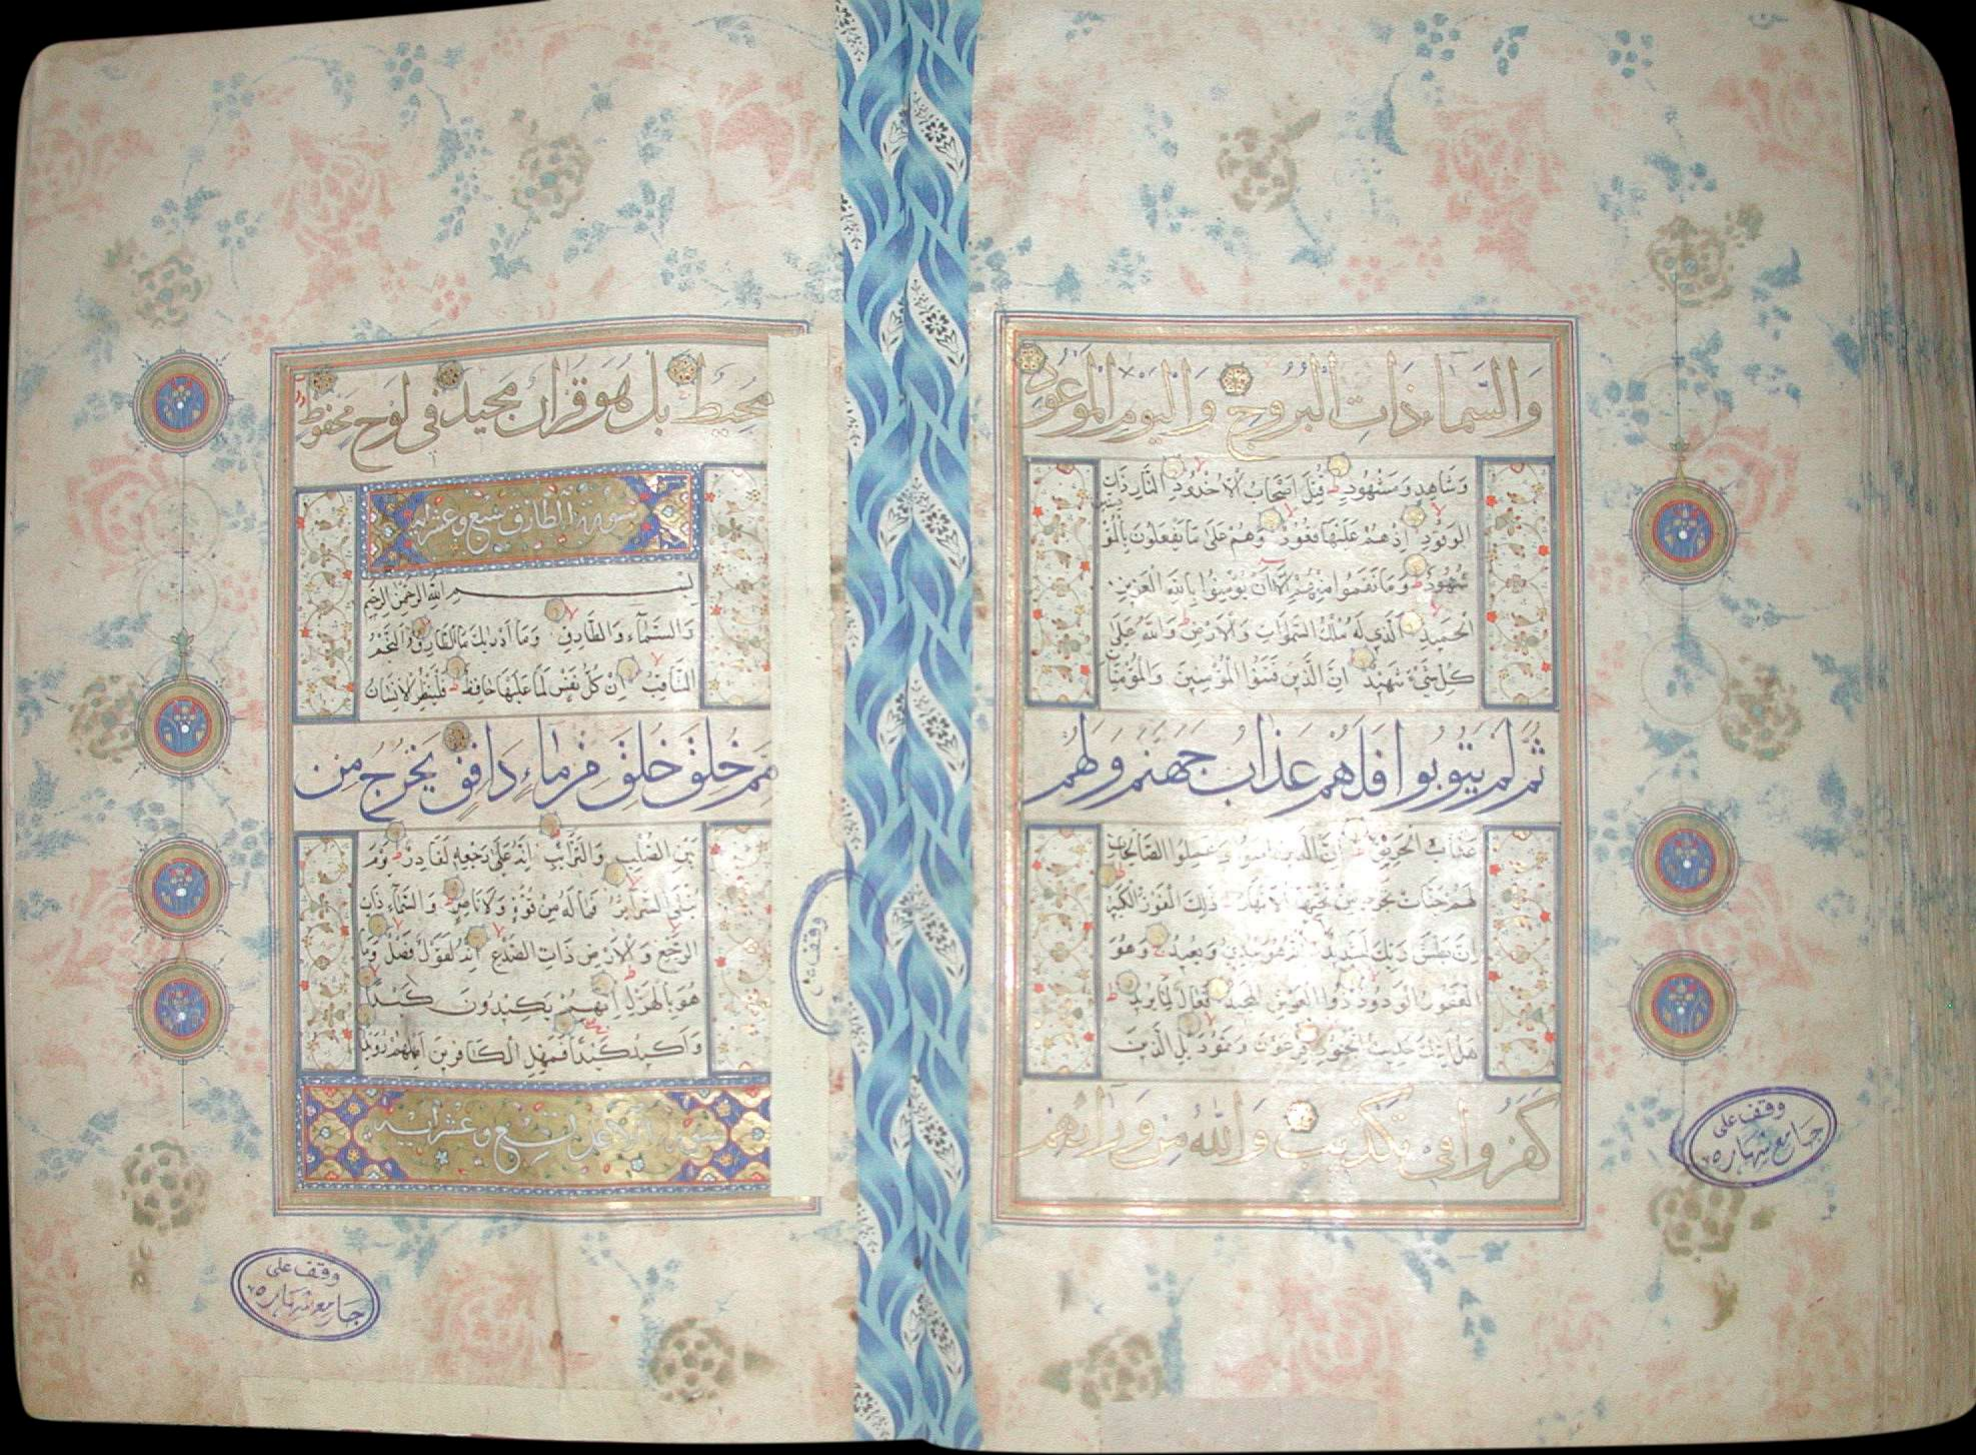 وَالسَّمَاءِ ذَاتِ الْبُرُوجِ وَالْيَوْمِ الْمَوْعُودِ
وَشَاهِدٍ وَمَشْهُودٍ قُتِلَ اَصْحَابُ الْاُخْدُودِ النَّارِ ذَاتِ
الْوَقُودِ اِذْ هُمْ عَلَيْهَا قُعُودٌ وَهُمْ عَلَى مَا يَفْعَلُونَ بِالْمُؤْمِنِينَ
شُهُودٌ وَمَا نَقَمُوا مِنْهُمْ اِلَّا اَنْ يُؤْمِنُوا بِاللّٰهِ الْعَزِيزِ
الْحَمِيدِ الَّذِي لَهُ مُلْكُ السَّمٰوَاتِ وَالْاَرْضِ وَاللّٰهُ عَلٰى
كُلِّ شَيْءٍ شَهِيدٌ اِنَّ الَّذِينَ فَتَنُوا الْمُؤْمِنِينَ وَالْمُؤْمِنَاتِ
ثُمَّ لَمْ يَتُوبُوا فَلَهُمْ عَذَابُ جَهَنَّمَ وَلَهُمْ
عَذَابُ الْحَرِيقِ اِنَّ الَّذِينَ اٰمَنُوا وَعَمِلُوا الصَّالِحَاتِ
لَهُمْ جَنَّاتٌ تَجْرِي مِنْ تَحْتِهَا الْاَنْهَارُ ذٰلِكَ الْفَوْزُ الْكَبِيرُ
اِنَّ بَطْشَ رَبِّكَ لَشَدِيدٌ اِنَّهُ هُوَ يُبْدِئُ وَيُعِيدُ وَهُوَ
الْغَفُورُ الْوَدُودُ ذُو الْعَرْشِ الْمَجِيدُ فَعَّالٌ لِمَا يُرِيدُ
هَلْ اَتٰيكَ حَدِيثُ الْجُنُودِ فِرْعَوْنَ وَثَمُودَ بَلِ الَّذِينَ
كَفَرُوا فِي تَكْذِيبٍ وَاللّٰهُ مِنْ وَرَائِهِمْ
وقف على
جامع شهاره
مُحِيطٌ بَلْ هُوَ قُرْاٰنٌ مَجِيدٌ فِي لَوْحٍ مَحْفُوظٍ
سورة الطارق سبع وعشر اية
بِسْمِ اللّٰهِ الرَّحْمٰنِ الرَّحِيمِ
وَالسَّمَآءِ وَالطَّارِقِ وَمَا اَدْرٰيكَ مَا الطَّارِقُ النَّجْمُ
الثَّاقِبُ اِنْ كُلُّ نَفْسٍ لَمَّا عَلَيْهَا حَافِظٌ فَلْيَنْظُرِ الْاِنْسَانُ
مِمَّ خُلِقَ خُلِقَ مِنْ مَاءٍ دَافِقٍ يَخْرُجُ مِنْ
بَيْنِ الصُّلْبِ وَالتَّرَائِبِ اِنَّهُ عَلٰى رَجْعِهِ لَقَادِرٌ يَوْمَ
تُبْلَى السَّرَائِرُ فَمَا لَهُ مِنْ قُوَّةٍ وَلَا نَاصِرٍ وَالسَّمَآءِ ذَاتِ
الرَّجْعِ وَالْاَرْضِ ذَاتِ الصَّدْعِ اِنَّهُ لَقَوْلٌ فَصْلٌ وَمَا
هُوَ بِالْهَزْلِ اِنَّهُمْ يَكِيدُونَ كَيْدًا
وَاَكِيدُ كَيْدًا فَمَهِّلِ الْكَافِرِينَ اَمْهِلْهُمْ رُوَيْدًا
سورة الاعلى تسع وعشر اية
وقف على
وقف على
جامع شهاره